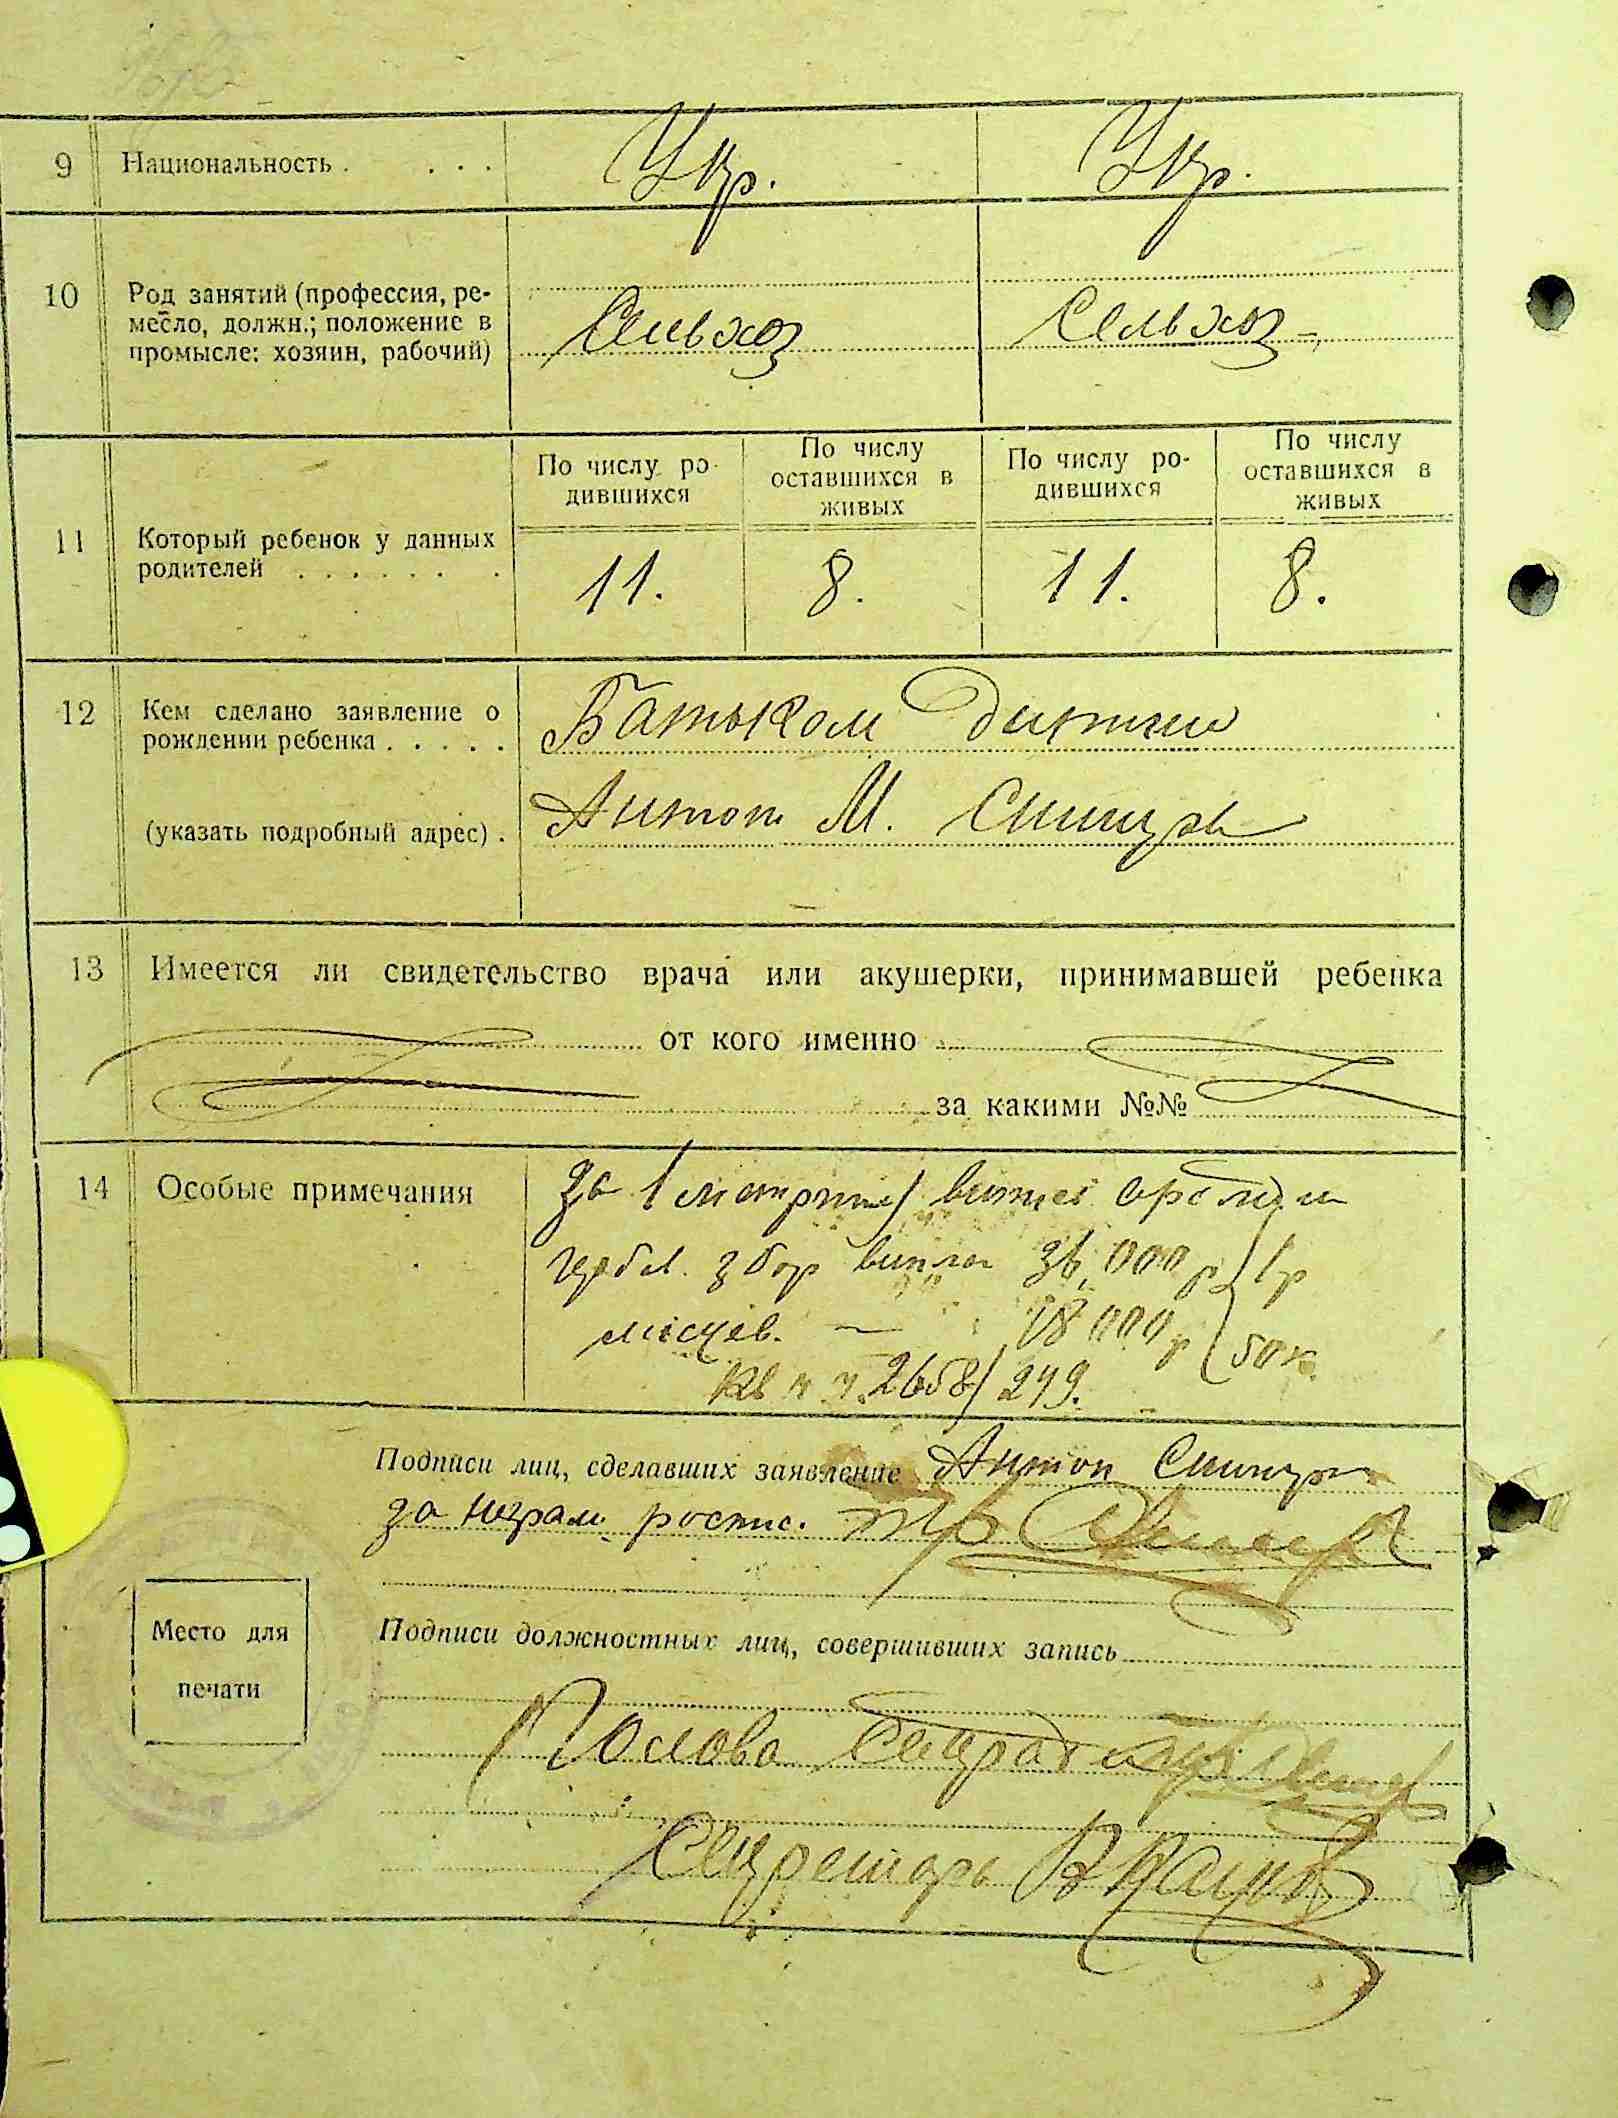 9 Национальность . . . . Укр. Укр.
10 Род занятий (профессия, ре-
месло, должн.; положение в
промысле: хозяин, рабочий)
Сельхоз Сельхоз
По числу ро-
дившихся
По числу
оставшихся в
живых
По числу ро-
дившихся
По числу
оставшихся в
живых
11 Который ребенок у данных
родителей . . . . . . .
11. 8. 11. 8.
12 Кем сделано заявление о
рождении ребенка . . . . .
Батьком дитини
(указать подробный адрес) .
Антон М.
13 Имеется ли свидетельство врача или акушерки, принимавшей ребенка
от кого именно
за какими №№
14 Особые примечания
За
збор 36,000 р 1 р
місцев. — 18 000 р 50 к.
кв 2658/249.
Подписи лиц, сделавших заявление Антон
за неграм. роспис.
Место для
печати
Подписи должностных лиц, совершивших запись
Голова
Секретарь